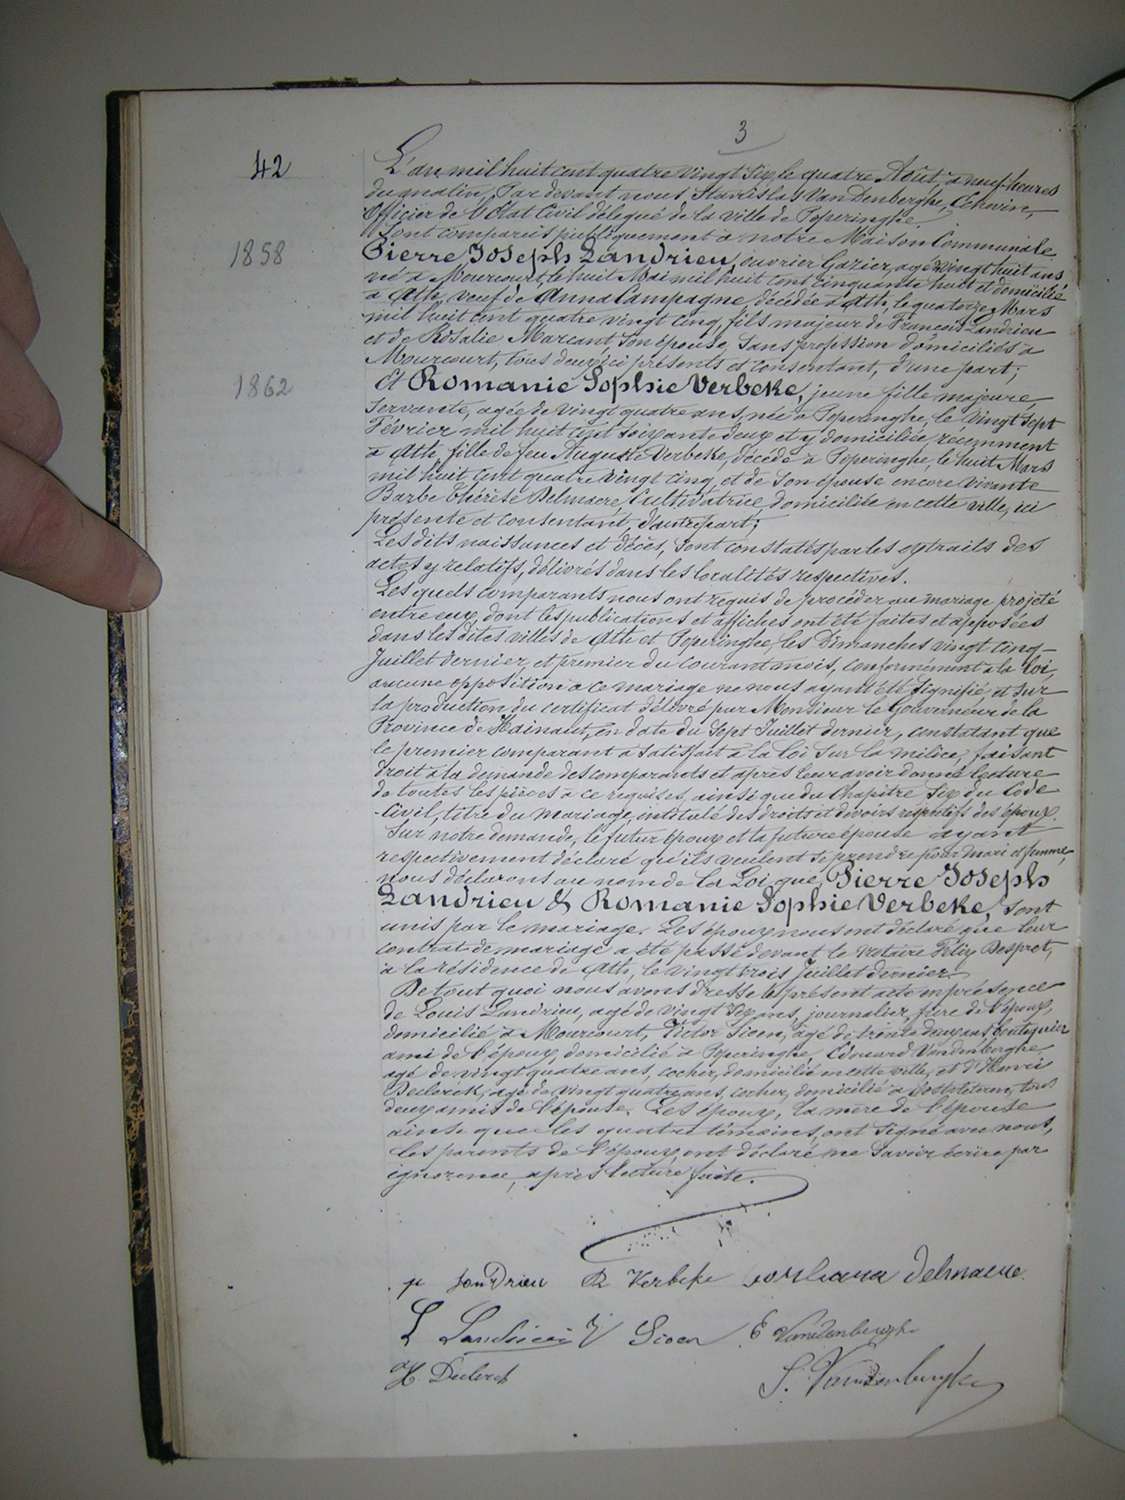 3
42
L'an mil huit cent quatre vingt six, le quatre Août, à neuf heures
du matin, Par devant nous Stanislas Van Denberghe, Echevin,
Officier de l'Etat Civil délégué de la ville de Poperinghe,
Sont comparus publiquement à notre Maison Communale
1858
Pierre Joseph Landrieu, ouvrier Gazier, agé vingt huit ans
né à Mourcourt, le huit Mai mil huit cent cinquante huit et domicilié
à Ath, veuf de Anna Campagne, décédée à Ath, le quatorze Mars
mil huit cent quatre vingt cinq, fils majeur de François Landrieu
et de Rosalie Marcant, son épouse, sans profession domiciliés à
Mourcourt, tous deux ici présents et consentant, d'une part;
1862
Et Romanie Sophie Verbeke, jeune fille majeure,
Servante, agée de vingt quatre ans, née à Poperinghe, le vingt sept
Février mil huit cent soixante deux et y domiciliée récemment
à Ath, fille de feu Auguste Verbeke, décédé à Poperinghe, le huit Mars
mil huit cent quatre vingt cinq, et de son épouse encore vivante
Barbe Thérèse Delmaere, Cultivatrice, domiciliée en cette ville, ici
présente et consentant, d'autre part;
Les dits naissances et décès, sont constatés par les extraits des
actes y relatifs, délivrés dans les localités respectives.
Les quels comparants nous ont requis de procéder au mariage projeté
entre eux, dont les publications et affiches ont été faites et apposées
dans les dites villes de Ath et Poperinghe, les Dimanches vingt cinq
Juillet dernier, et premier du courant mois, conformément à la loi,
aucune opposition à ce mariage ne nous ayant été signifié, et sur
la production du certificat délivré par Monsieur le Gouverneur de la
Province de Hainaut, en date du sept Juillet dernier, constatant que
le premier comparant a satisfait à la loi sur la milice, faisant
droit à la demande des comparants et après leur avoir donné lecture
de toutes les pièces à ce requises, ainsi que du Chapitre six du Code
Civil, titre du Mariage, intitulé des droits et devoirs respectifs des époux.
Sur notre demande, le futur époux et la future épouse ayant
respectivement déclaré qu'ils veulent se prendre pour mari et femme,
nous déclarons au nom de la Loi que, Pierre Joseph
Landrieu & Romanie Sophie Verbeke, sont
unis par le mariage. Les époux nous ont déclaré que leur
contrat de mariage a été passé devant le Notaire Félix Despret,
à la résidence de Ath, le vingt trois Juillet dernier.
De tout quoi nous avons dressé le présent acte en présence
de Louis Landrieu, agé de vingt six ans, journalier, frère de l'époux,
domicilié à Mourcourt, Victor Sioen, agé de trente deux ans, boutiquier
ami de l'époux, domicilié à Poperinghe, Edouard Vandenberghe
agé de vingt quatre ans, cocher, domicilié en cette ville, et d'Henri
Declerck, agé de vingt quatre ans, cocher, domicilié à tous
deux amis de l'épouse. Les époux, la mère de l'épouse
ainsi que les quatre témoins, ont signé avec nous,
les parents de l'époux, ont déclaré ne savoir écrire par
ignorance, après lecture faite.
P Landrieu R Verbeke Barbara Delmaere
L Landrieu V Sioen E Vandenberghe
H. Declerck S. Vandenberghe